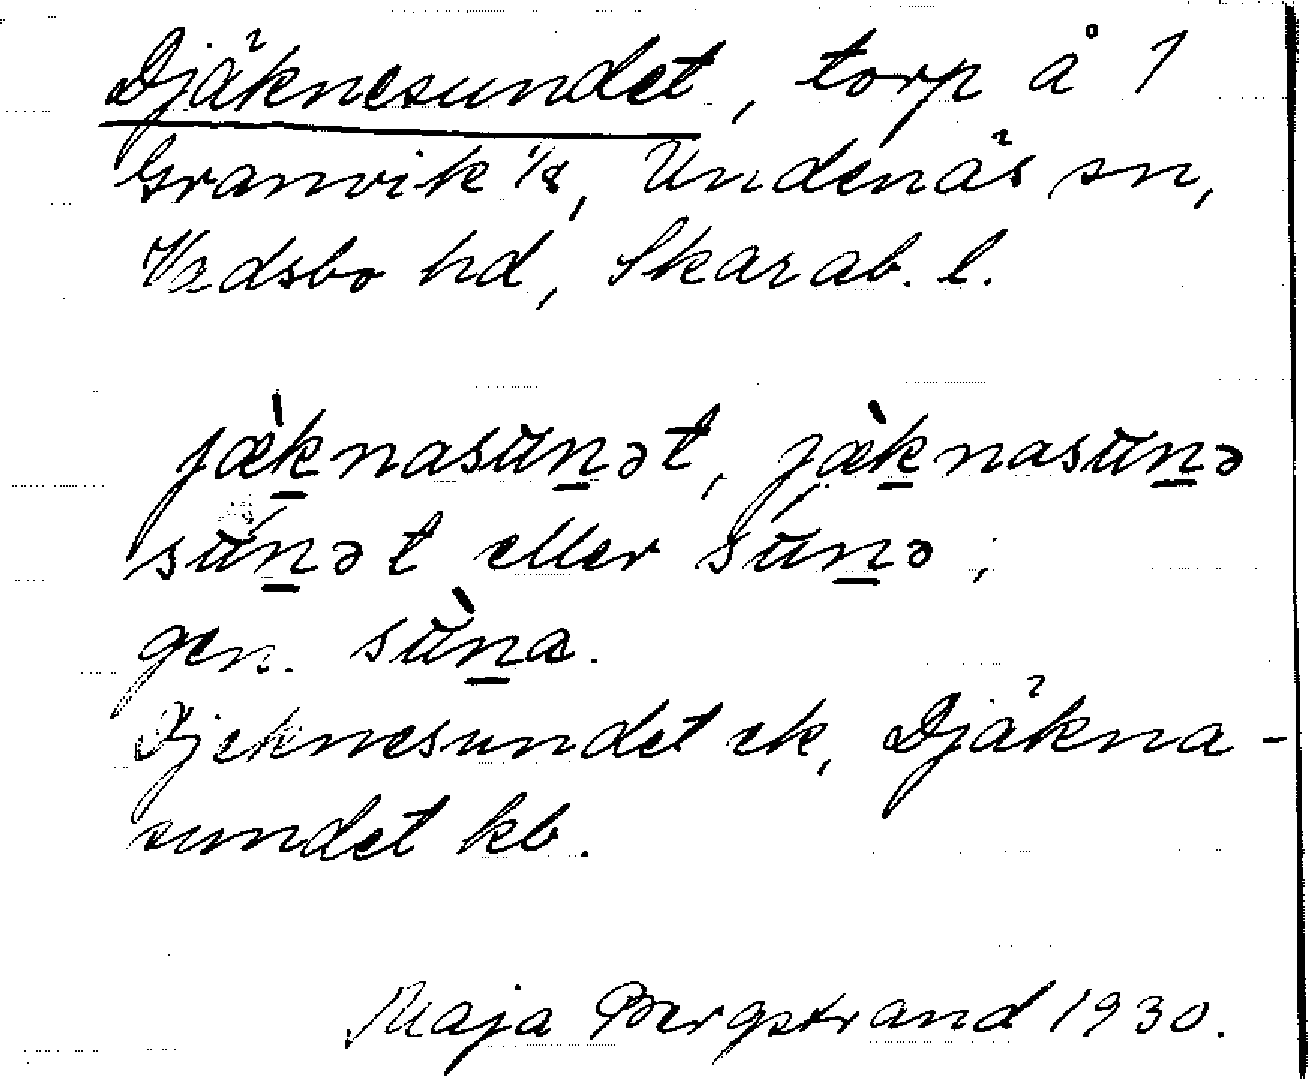 Djäknesundet, torp å 1
Granvik 1/8, Undenäs sn,
Vadsbo hd, Skarab. l.
jæ̀ḵnasūṉət, jæ̀ḵnasūṉə
sū́ṉət eller sū́ṉə;
gen. sū̀ṉa.
Djeknesundet ek, Djäkna-
sundet kb.
Maja Bergstrand 1930.